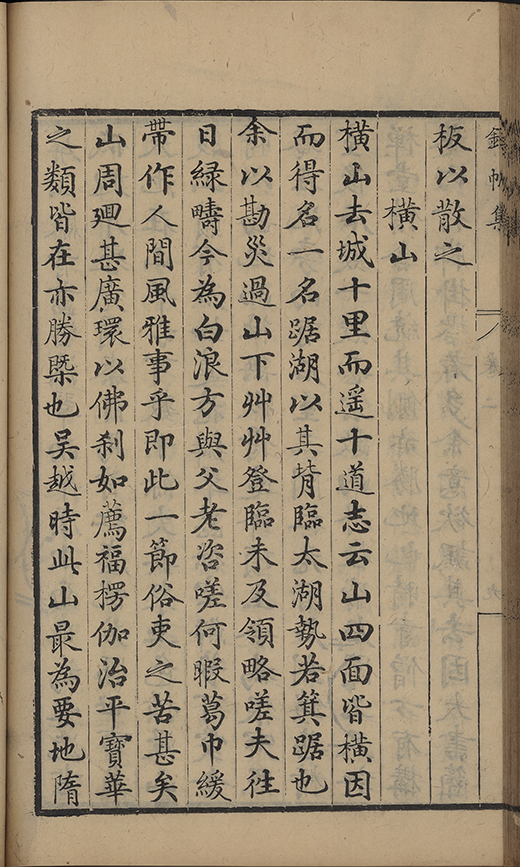 錦帆集
卷二
九
板以散之
橫山
橫山去城十里而遥十道志云山四面皆橫因
而得名一名踞湖以其背臨太湖勢若箕踞也
余以勘災過山下艸艸登臨未及領略嗟夫往
日緑疇今為白浪方與父老咨嗟何暇葛巾緩
帶作人間風雅事乎即此一節俗吏之苦甚矣
山周廻甚廣環以佛刹如薦福楞伽治平寶華
之類皆在亦勝槩也吴越時此山最為要地隋